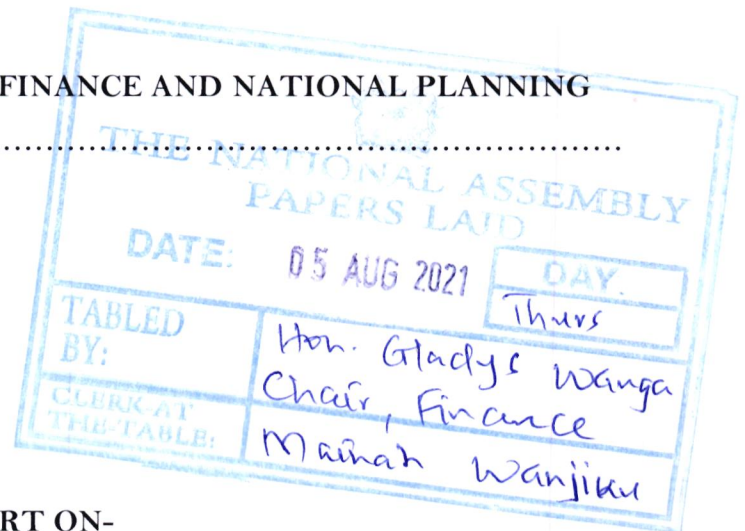 FINANCE AND NATIONAL PLANNING
THE NATIONAL ASSEMBLY
PAPERS LAID
DATE: 05 AUG 2021
DAY.
Thurs
TABLED
BY:
Hon. Gladys Wanga
Chair, Finance
CLERK-AT
THE-TABLE:
Mainah Wanjiku
RT ON-